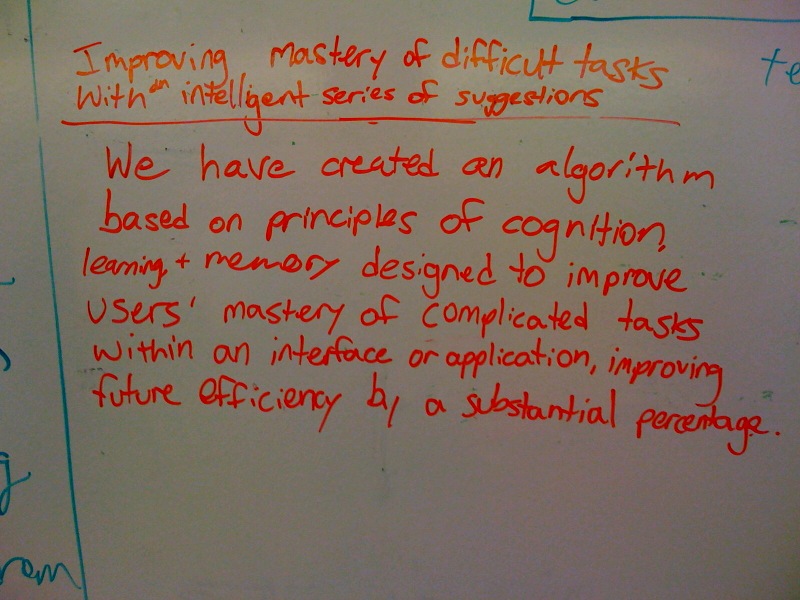 Improving mastery of difficult tasks
With an intelligent series of suggestions
We have created an algorithm
based on principles of cognition,
learning, + memory designed to improve
users' mastery of complicated tasks
within an interface or application, improving
future efficiency by a substantial percentage.
te
g
ram